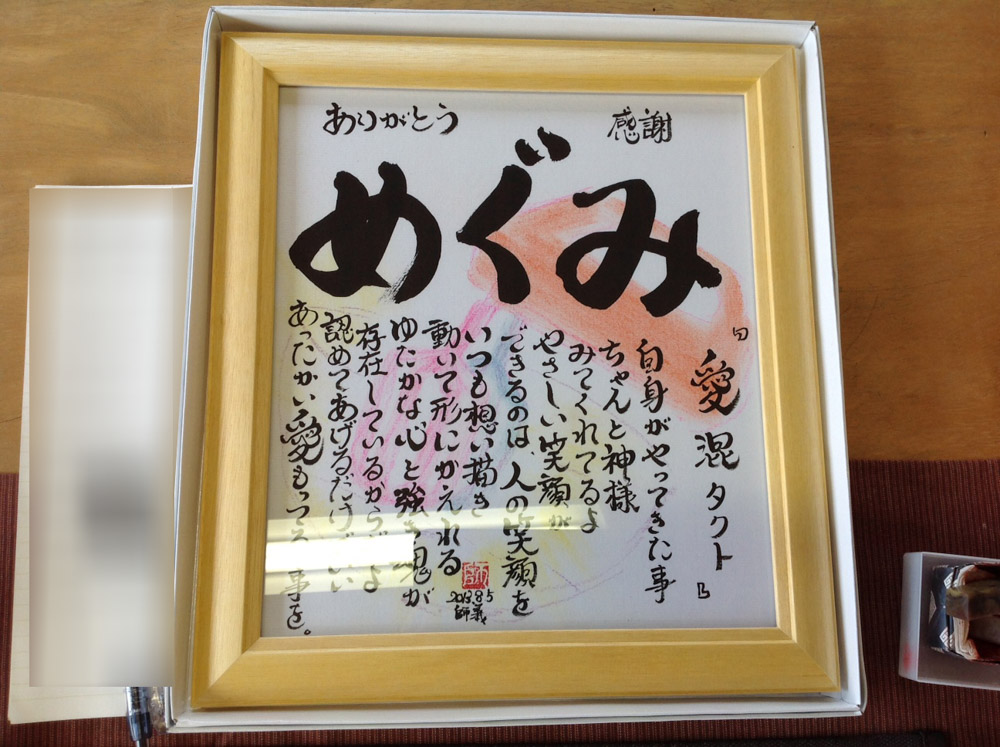 ありがとう
感謝
めぐみ
「愛混タクト」
自身がやってきた事
ちゃんと神様
みてくれてるよ
やさしい笑顔が
できるのは、人の笑顔を
いつも想い描き
動いて形にかえれる
ゆたかな心と強き魂が
存在しているからだよ
認めてあげるだけでいい
あったかい愛もってる事を。
2013.8.5